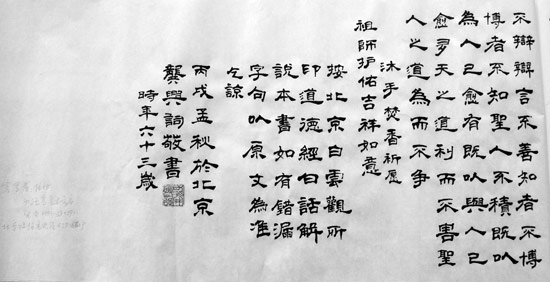 不辯辯言不善知者不博
博者不知聖人不積既以
為人己愈有既以與人己
愈多天之道利而不害聖
人之道為而不争
沐手焚香祈愿
祖師护佑吉祥如意
按北京白雲觀所
印道德經白話解
說本書如有錯漏
字句以原文為准
乞諒
丙戌孟秋於北京
龔興詞敬書
時年六十三歲